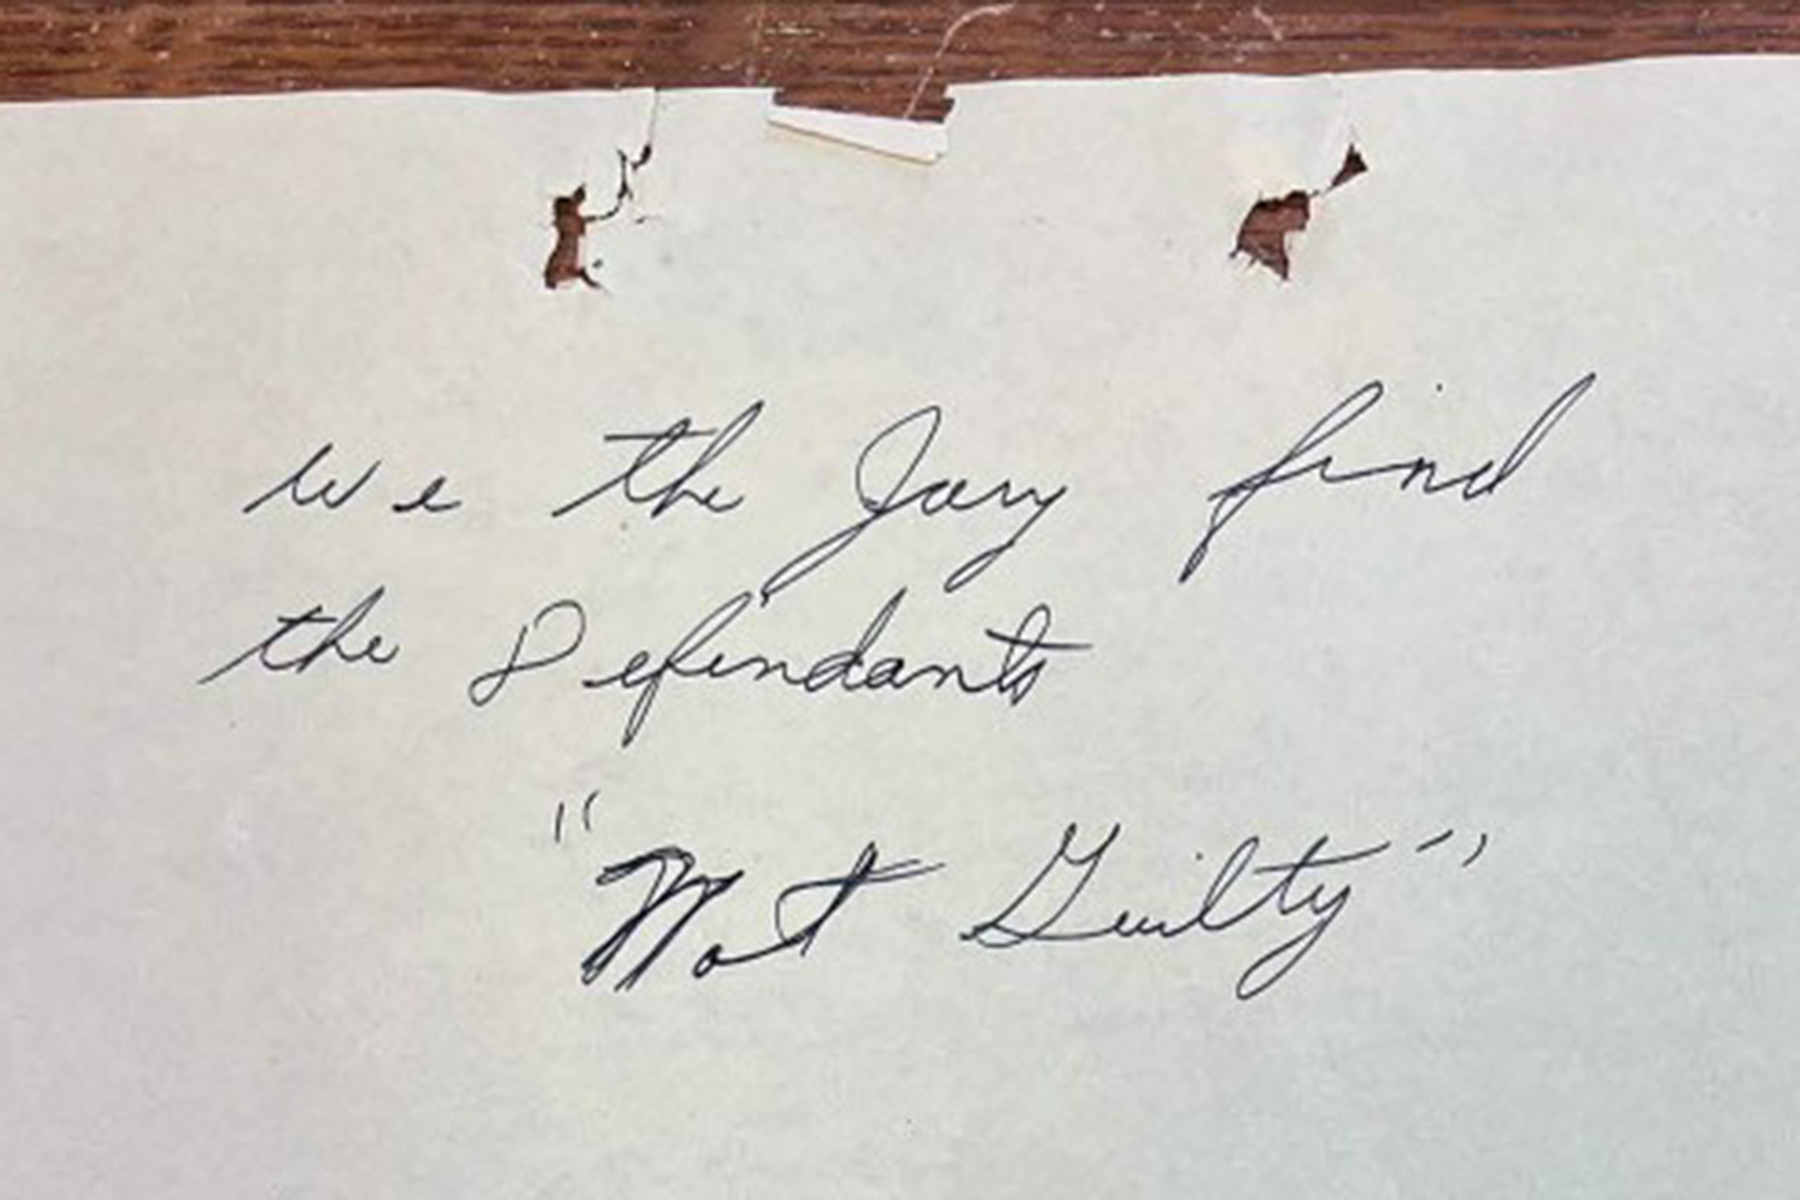 we the Jury find
the Defendants
"Not Guilty"